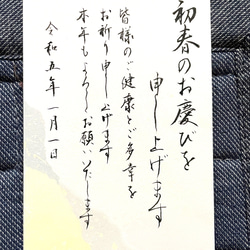 初春のお慶びを
申し上げます
皆様のご健康とご多幸を
お祈り申し上げます
本年もよろしくお願いいたします
令和五年一月一日